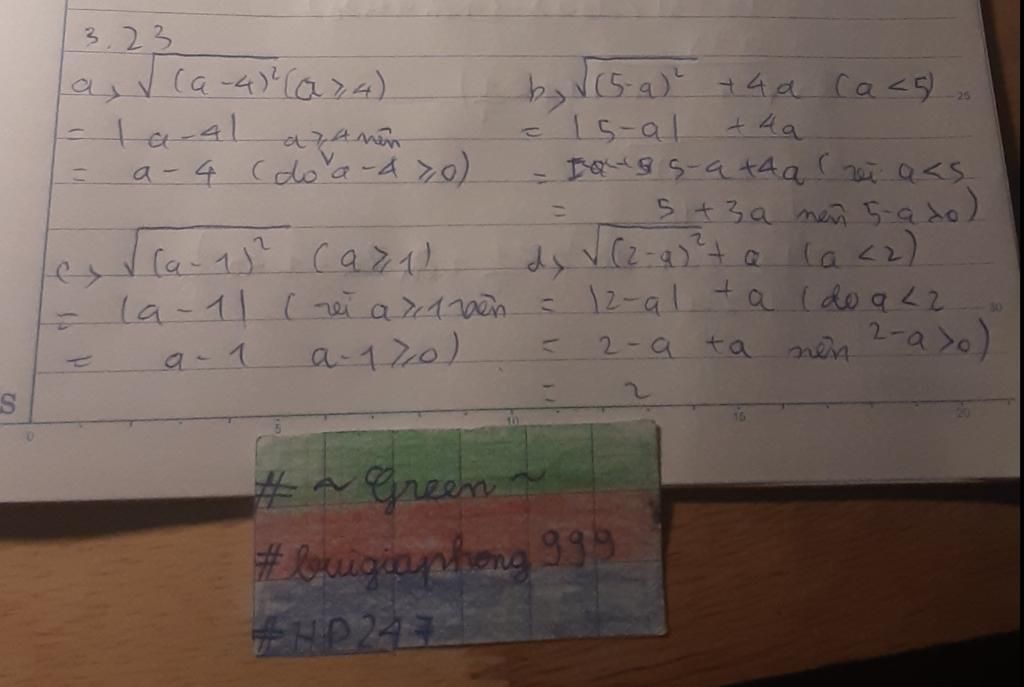 3.23
a, √(a-4)² (a ≥ 4)
= |a-4| a ≥ 4 nên
= a-4 (do a-4 ≥ 0)
b, √(5-a)² + 4a (a < 5)
= |5-a| + 4a
= 5-a+4a (với a < 5
= 5 + 3a nên 5-a > 0)
c, √(a-1)² (a ≥ 1)
= |a-1| (với a ≥ 1 nên
= a-1 a-1 ≥ 0)
d, √(2-a)² + a (a < 2)
= |2-a| + a (do a < 2
= 2-a + a nên 2-a > 0)
= 2
S
0 5 10 15 20
25
30
# ~ Green ~
#buigiaphong999
#HP247